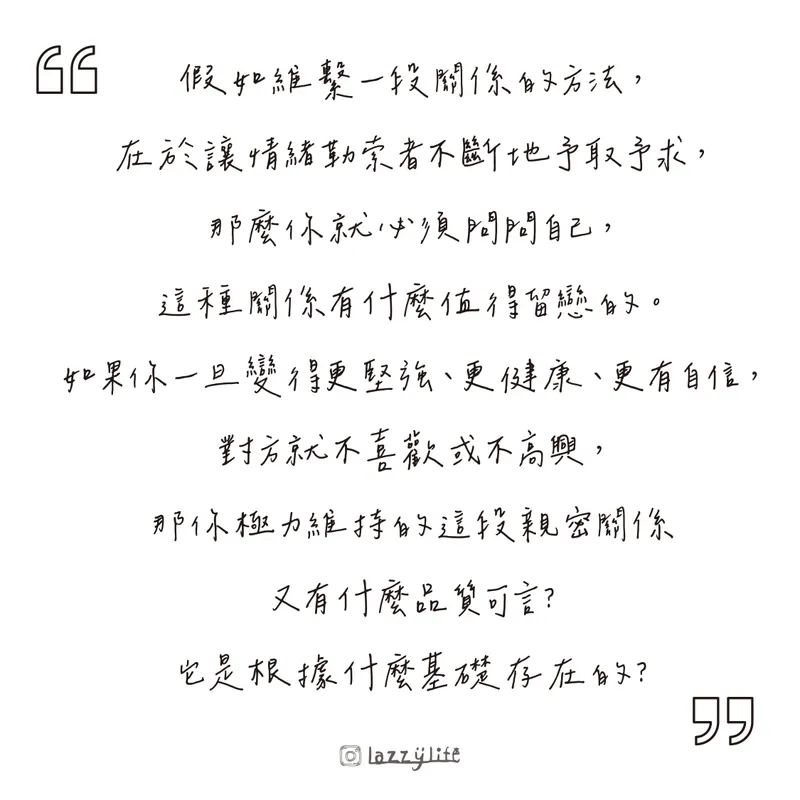 假如維繫一段關係的方法，
在於讓情緒勒索者不斷地予取予求，
那麼你就必須問問自己，
這種關係有什麼值得留戀的。
如果你一旦變得更堅強、更健康、更有自信，
對方就不喜歡或不高興，
那你極力維持的這段親密關係
又有什麼品質可言?
它是根據什麼基礎存在的?
lazzylife